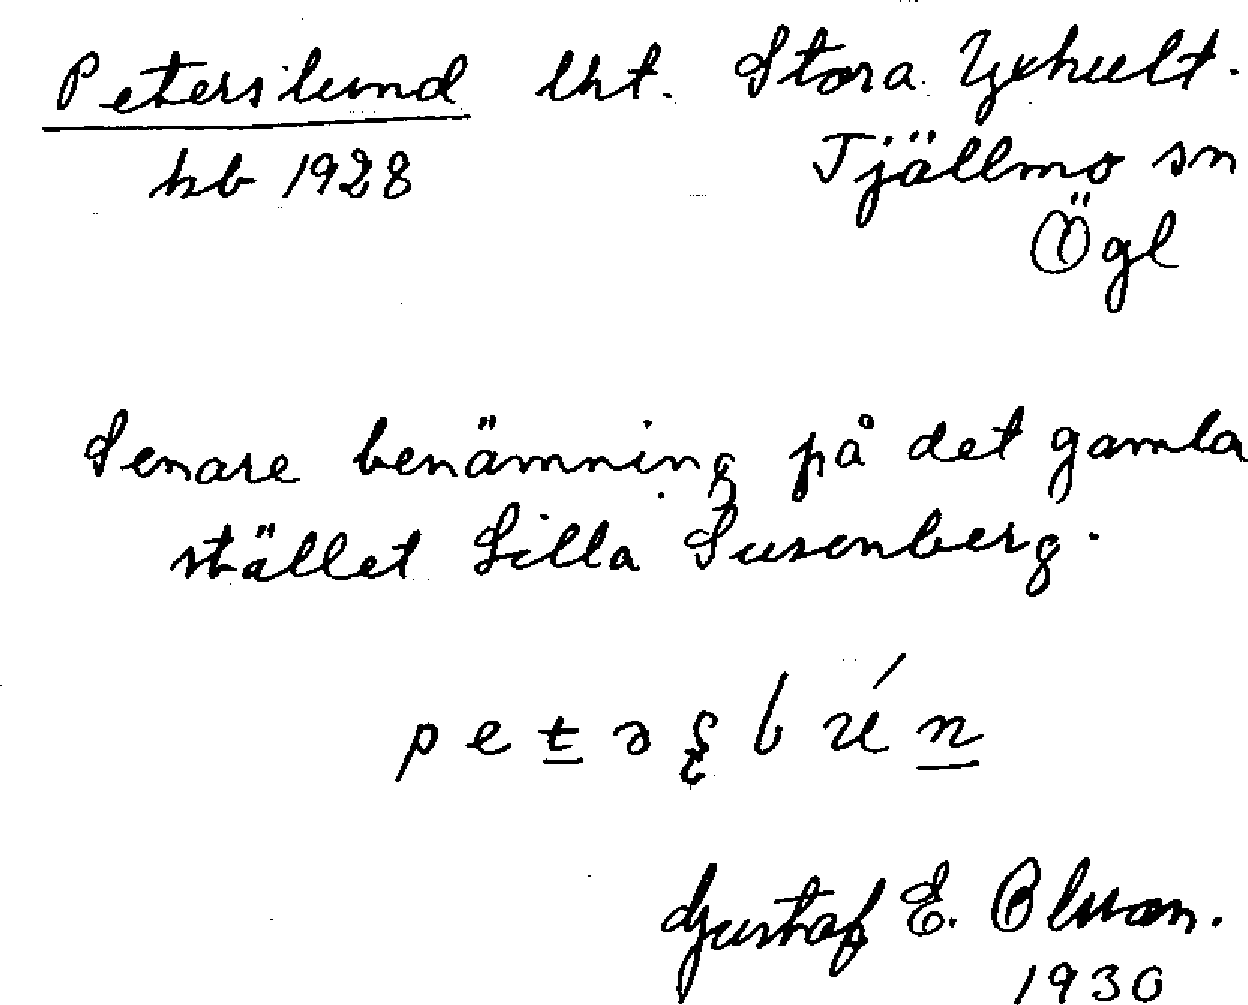 Peterslund lht. Stora Yxhult.
hb 1928 Tjällmo sn
Ögl
Senare benämning på det gamla
stället Lilla Susenberg.
Gustaf E. Olsson.
1930